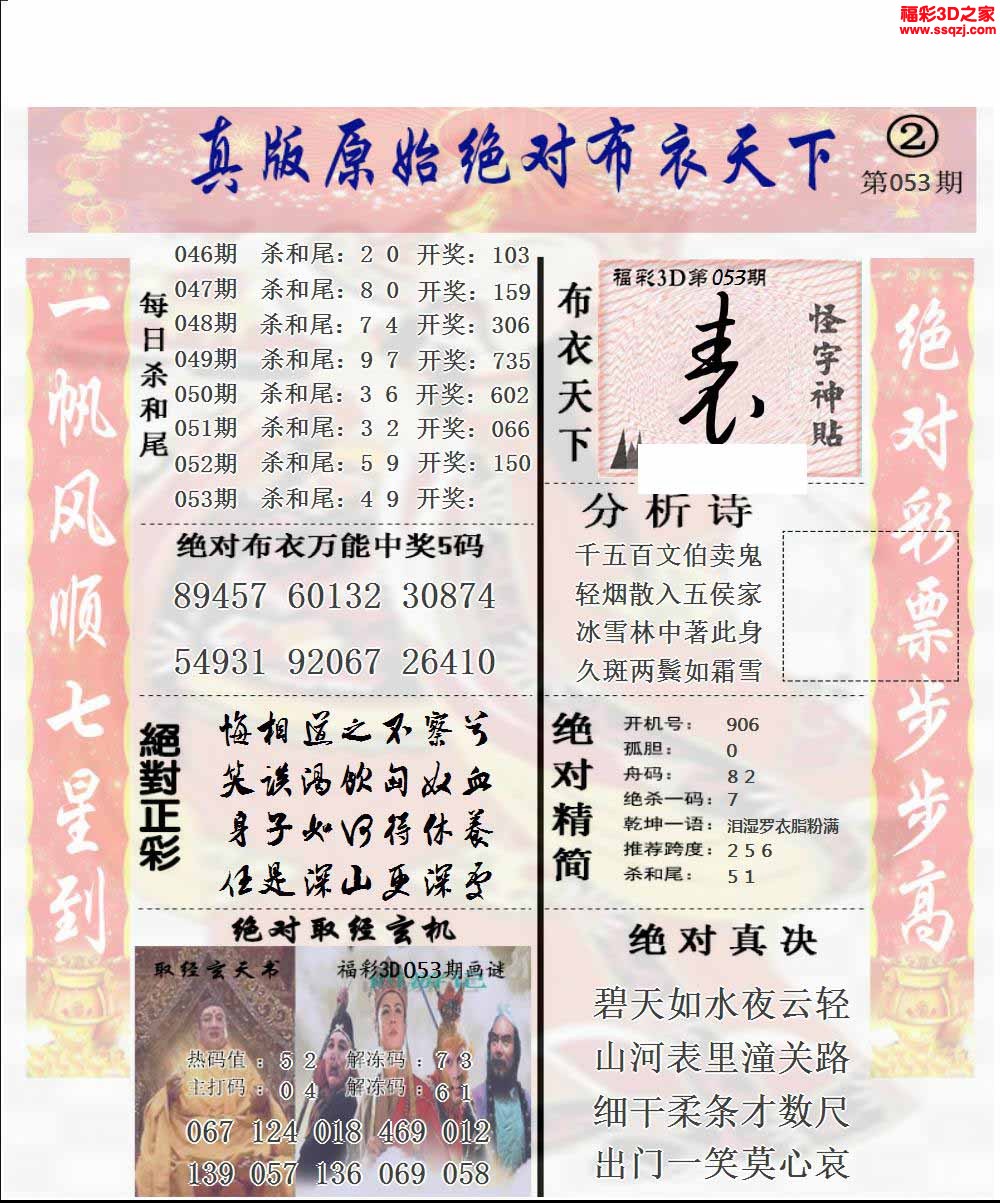 福彩3D之家
www.ssqzj.com
真版原始绝对布衣天下
②
第053期
一帆风顺七星到
每日杀和尾
046期 杀和尾：2 0 开奖：103
047期 杀和尾：8 0 开奖：159
048期 杀和尾：7 4 开奖：306
049期 杀和尾：9 7 开奖：735
050期 杀和尾：3 6 开奖：602
051期 杀和尾：3 2 开奖：066
052期 杀和尾：5 9 开奖：150
053期 杀和尾：4 9 开奖：
绝对布衣万能中奖5码
89457 60132 30874
54931 92067 26410
絕對正彩
悔相道之不察兮
笑谈渴饮匈奴血
身子如何得休养
任是深山更深处
绝对取经玄机
取经玄天书
福彩3D053期画谜
热码值：5 2 解冻码：7 3
主打码：0 4 解冻码：6 1
067 124 018 469 012
139 057 136 069 058
布衣天下
福彩3D第053期
怪字神貼
分析诗
千五百文伯卖鬼
轻烟散入五侯家
冰雪林中著此身
久斑两鬓如霜雪
绝对精简
开机号：906
孤胆：0
舟码：8 2
绝杀一码：7
乾坤一语：泪湿罗衣脂粉满
推荐跨度：2 5 6
杀和尾：5 1
绝对真决
碧天如水夜云轻
山河表里潼关路
细干柔条才数尺
出门一笑莫心哀
绝对彩票步步高